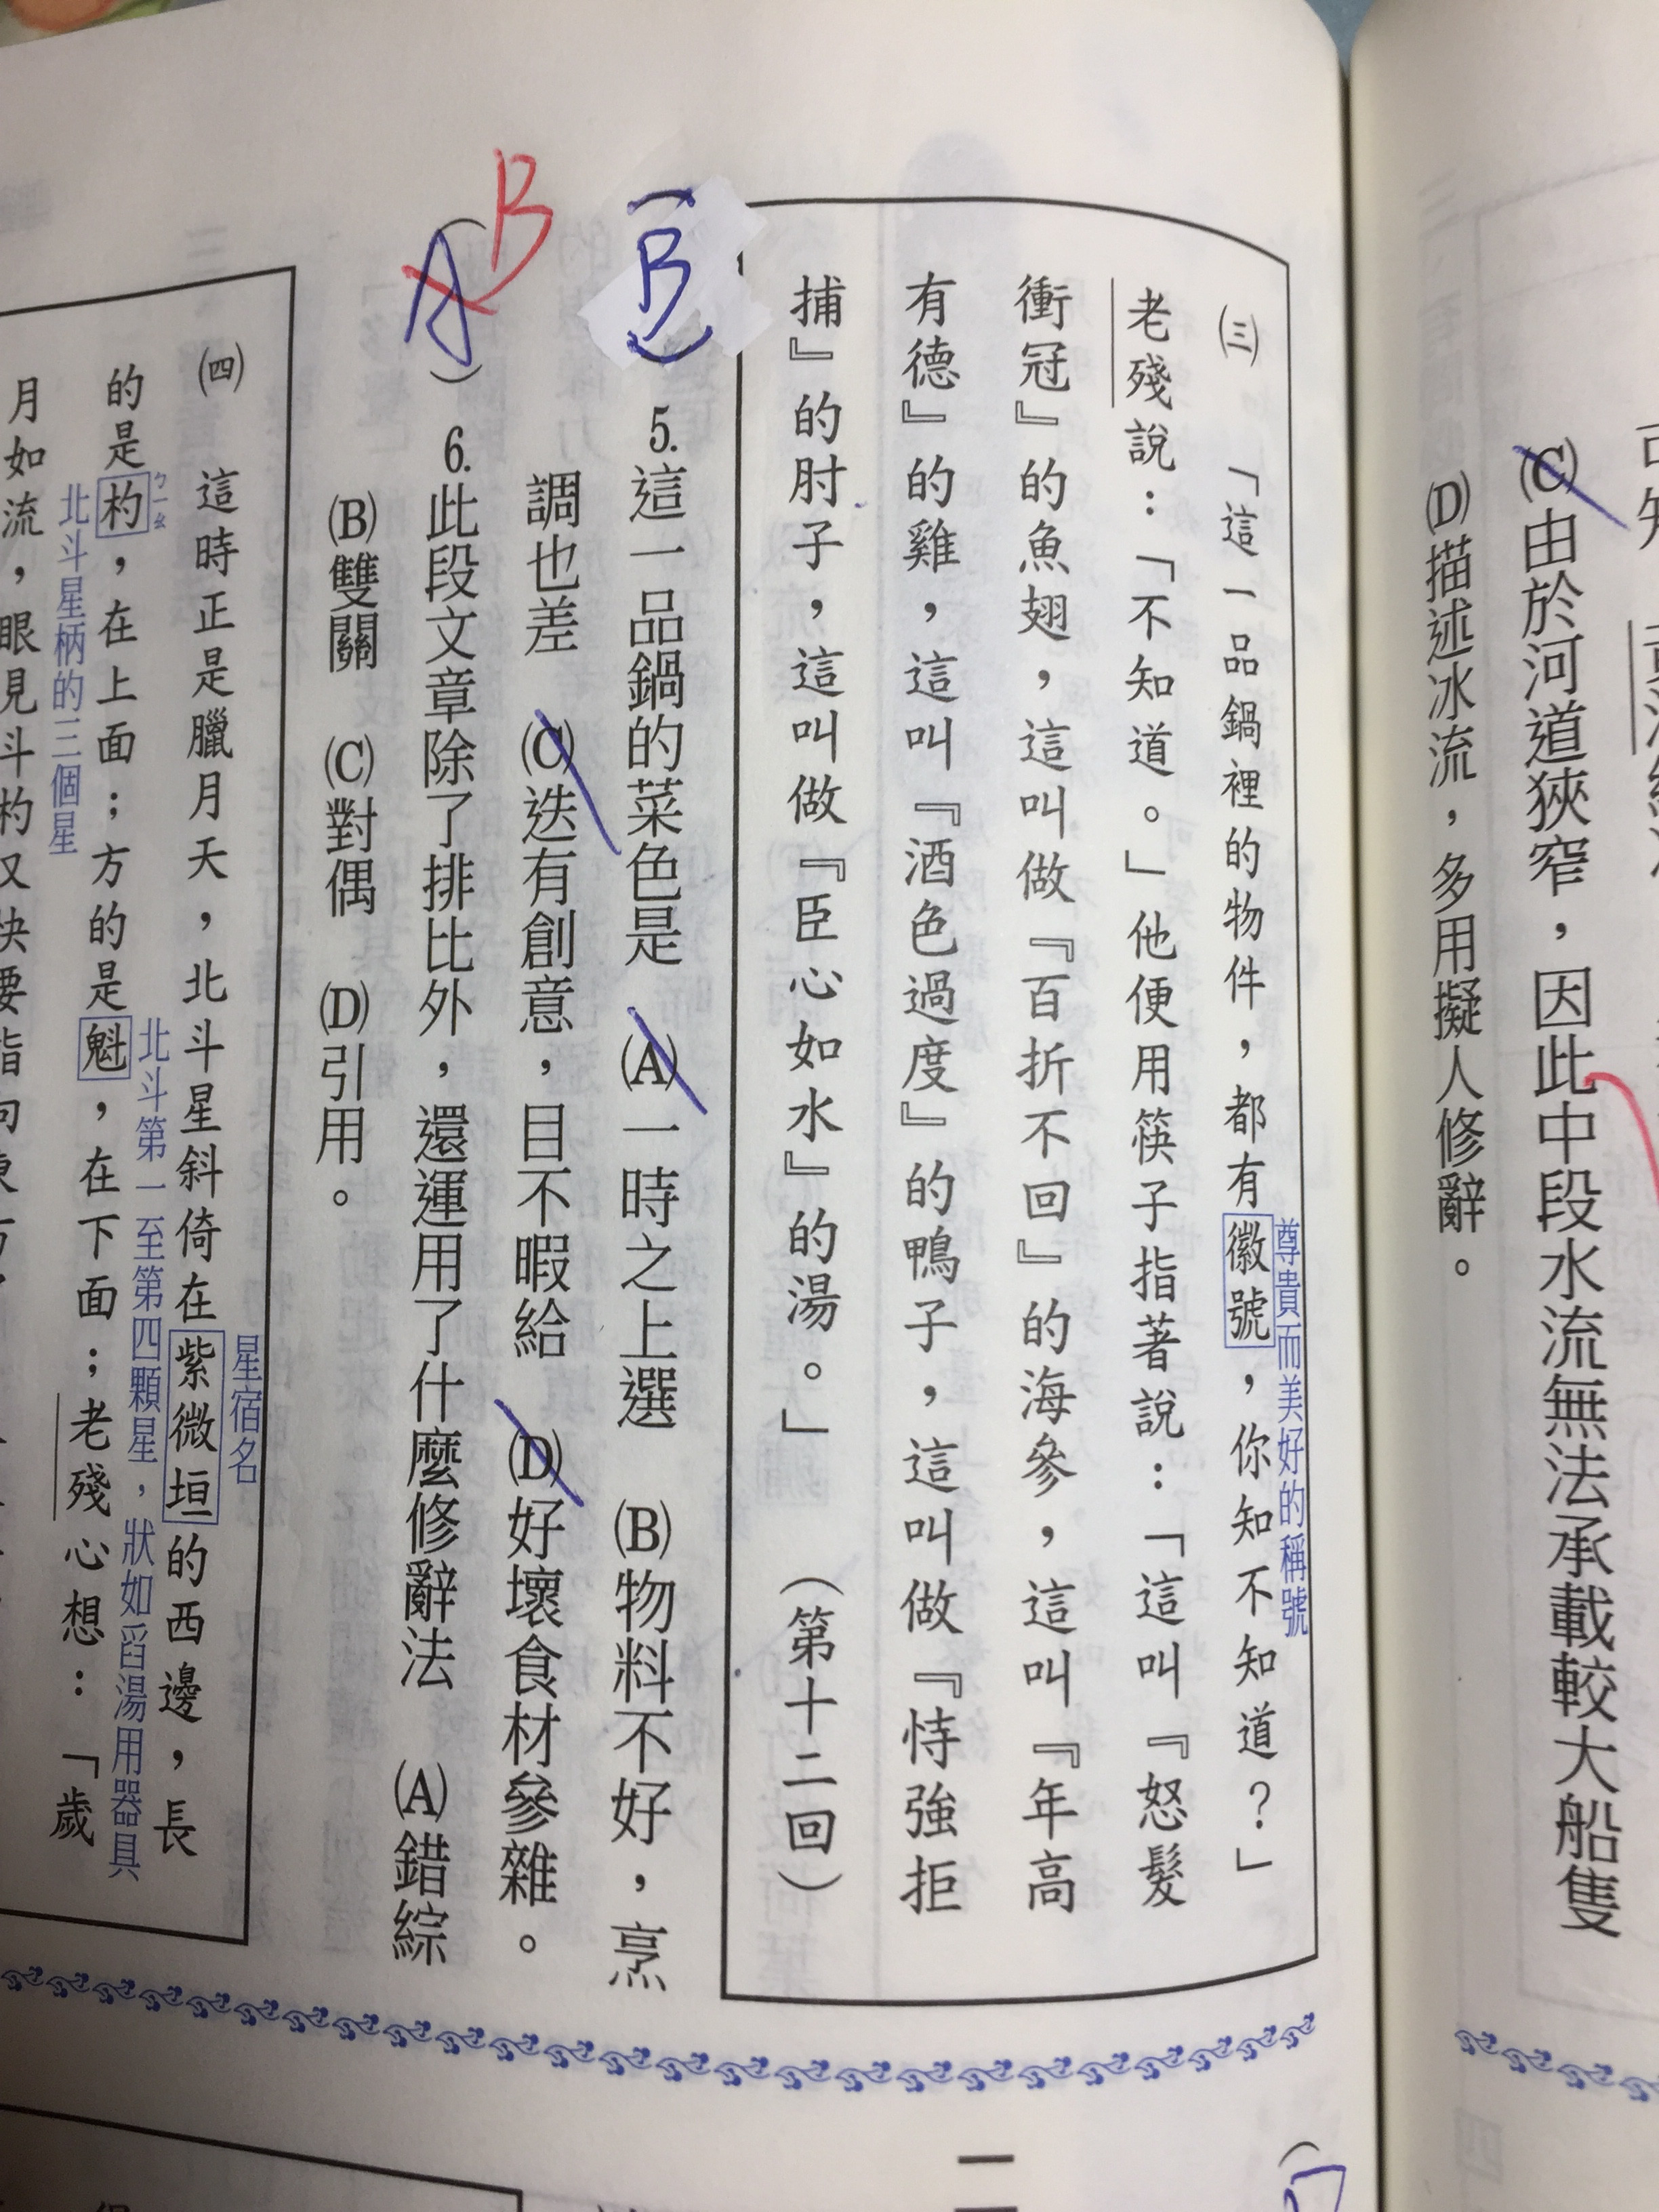 (C)由於河道狹窄，因此中段水流無法承載較大船隻
(D)描述冰流，多用擬人修辭。
(三)
「這一品鍋裡的物件，都有徽號，你知不知道？」
尊貴而美好的稱號
老殘說：「不知道。」他便用筷子指著說：「這叫『怒髮
衝冠』的魚翅，這叫做『百折不回』的海參，這叫『年高
有德』的雞，這叫『酒色過度』的鴨子，這叫做『恃強拒
捕』的肘子，這叫做『臣心如水』的湯。」（第十二回）
(B)
5.這一品鍋的菜色是 (A)一時之上選 (B)物料不好，烹
調也差 (C)迭有創意，目不暇給 (D)好壞食材參雜。
B
(A)
6.此段文章除了排比外，還運用了什麼修辭法 (A)錯綜
(B)雙關 (C)對偶 (D)引用。
(四)
星宿名
這時正是臘月天，北斗星斜倚在紫微垣的西邊，長
北斗第一至第四顆星，狀如舀湯用器具
的是杓，在上面；方的是魁，在下面；老殘心想：「歲
ㄅㄧㄠ
北斗星柄的三個星
月如流，眼見斗杓又快要指向東方